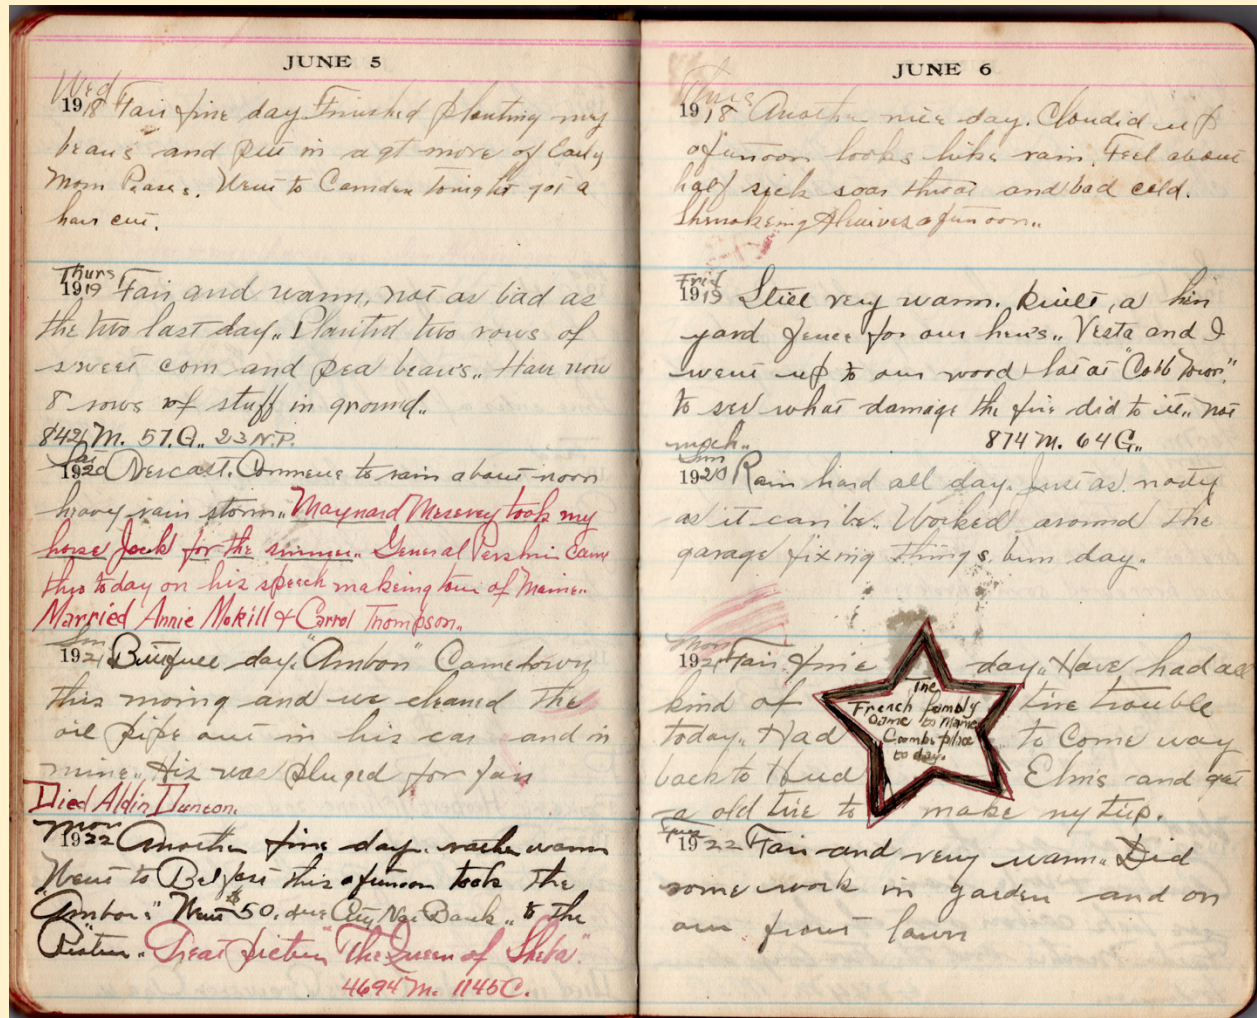 JUNE 5
Wed
1918 Fair fine day. Finished planting my
beans and put in a qt more of Early
Morn Peas. Went to Camden tonight got a
hair cut.
Thurs
1919 Fair and warm, not as bad as
the two last day.. Planted two rows of
sweet corn and pea bean's.. Have now
8 rows of stuff in ground..
842 M. 57. G.. 23 N.P.
Sat
1920 Overcast. Commence to rain about noon
heavy rain storm.. Maynard Meservey took my
horse Jack for the summer.. General Pershin came
thro today on his speech makeing tour of Maine..
Married Annie McKill & Carrol Thompson..
Sun
1921 day. "Ambon" Came
this morning and we cleaned the
oil pipe out in his car and in
mine.. His was pluged for fair
Died Aldin Duncon.
Mon
1922 Another fine day. rather warm
Went to Belfast this afunoon took the
"Ambon's" $50. due City Nat Bank.. to the
"Great pictur" "The Queen of Sheba".
4694 M. 1145 C.
JUNE 6
Thurs
1918 Another nice day. Cloudid up
afunoon looks like rain. Feel about
half sick soar throat and bad cold.
afunoon..
Frid
1919 Still very warm. built, a hin
yard fence for our hens.. Vesta and I
went up to our wood lot at "Cobb Town".
to see what damage the fire did to it.. not
much.. 874 M. 64 G..
Sun
1920 Rain hard all day. Just as nasty
as it can be.. Worked around the
garage fixing things bum day..
Mon
1921 Fair fine day.. Have had all
kind of tire trouble
today.. Had to Come way
back to Hud Elms and get
a old tire to make my trip.
The
French family
Came to Mame
Combs place
to day.
1922 Fair and very warm.. Did
some work in garden and on
our front lawn